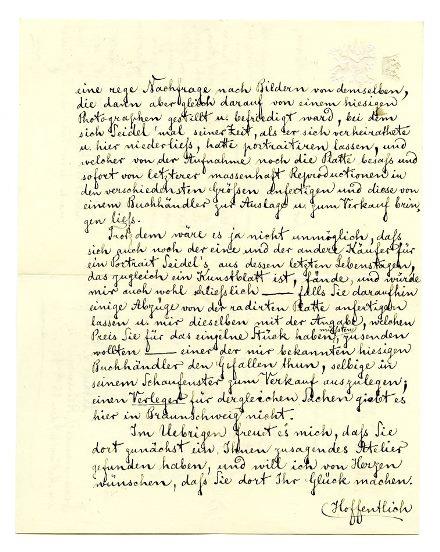 eine rege Nachfrage nach Bildern von demselben,
die dann aber gleich darauf von einem hiesigen
Photographen gestillt u. befriedigt ward, bei dem
sich Seidel 'mal seiner Zeit, als er sich verheirathete
u. hier niederließ, hatte portraitiren lassen, und
welcher von der Aufnahme noch die Platte besass und
sofort von letzterer massenhaft Reproductionen in
den verschiedensten Größen anfertigen und diese von
einem Buchhändler zur Auslage u. zum Verkauf brin-
gen liess.
Trotzdem wäre es ja nicht unmöglich, daß
sich auch noch der eine und der andere Käufer für
ein Portrait Seidel's aus dessen letzten Lebenstagen,
das zugleich ein Kunstblatt ist, fände, und würde
mir auch wohl schliesslich — falls Sie daraufhin
einige Abzüge von der radirten Platte anfertigen
lassen u. mir dieselben mit der Angabe, welchen
Preis Sie für das einzelne Stück haben müssten, zusenden
wollten — einer der mir bekannten hiesigen
Buchhändler den Gefallen thun, selbige in
seinem Schaufenster zum Verkauf auszulegen;
einen Verleger für dergleichen Sachen giebt es
hier in Braunschweig nicht.
Im Uebrigen freut es mich, daß Sie
dort zunächst ein Ihnen zusagendes Atelier
gefunden haben, und will ich von Herzen
wünschen, daß Sie dort Ihr Glück machen.
Hoffentlich